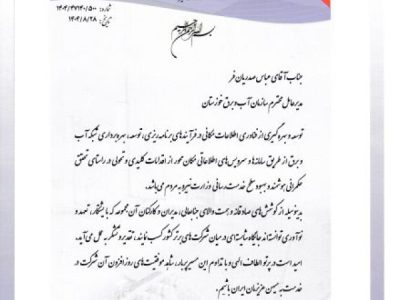 شماره: ۱۴۰۴/۴۷۱۴۰/۵۰۰
تاریخ: ۱۴۰۴/۸/۲۸
جناب آقای عباس صدریان فر
مدیرعامل محترم سازمان آب و برق خوزستان
توسعه و بهره گیری از فناوری اطلاعات مکانی در فرآیندهای برنامه ریزی، توسعه، بهره برداری شبکه آب
و برق از طریق سامانه ها و سرویس های اطلاعاتی مکان محور از اقدامات کلیدی و تحولی در راستای تحقق
حکمرانی هوشمند و بهبود سطح خدمت رسانی وزارت نیرو به مردم می باشد.
بدینوسیله از کوشش های صادقانه و همت والای جنابعالی، مدیران و کارکنان آن مجموعه که با ابتکار، تعهد و
نوآوری توانسته اند جایگاه شایسته ای در میان شرکت های برتر کشور کسب نمایند، تقدیر و تشکر به عمل می آید.
امید است در پرتو الطاف الهی و با تداوم این مسیر پربار، شاهد موفقیت های روزافزون آن شرکت در
خدمت به میهن عزیزمان ایران باشیم.